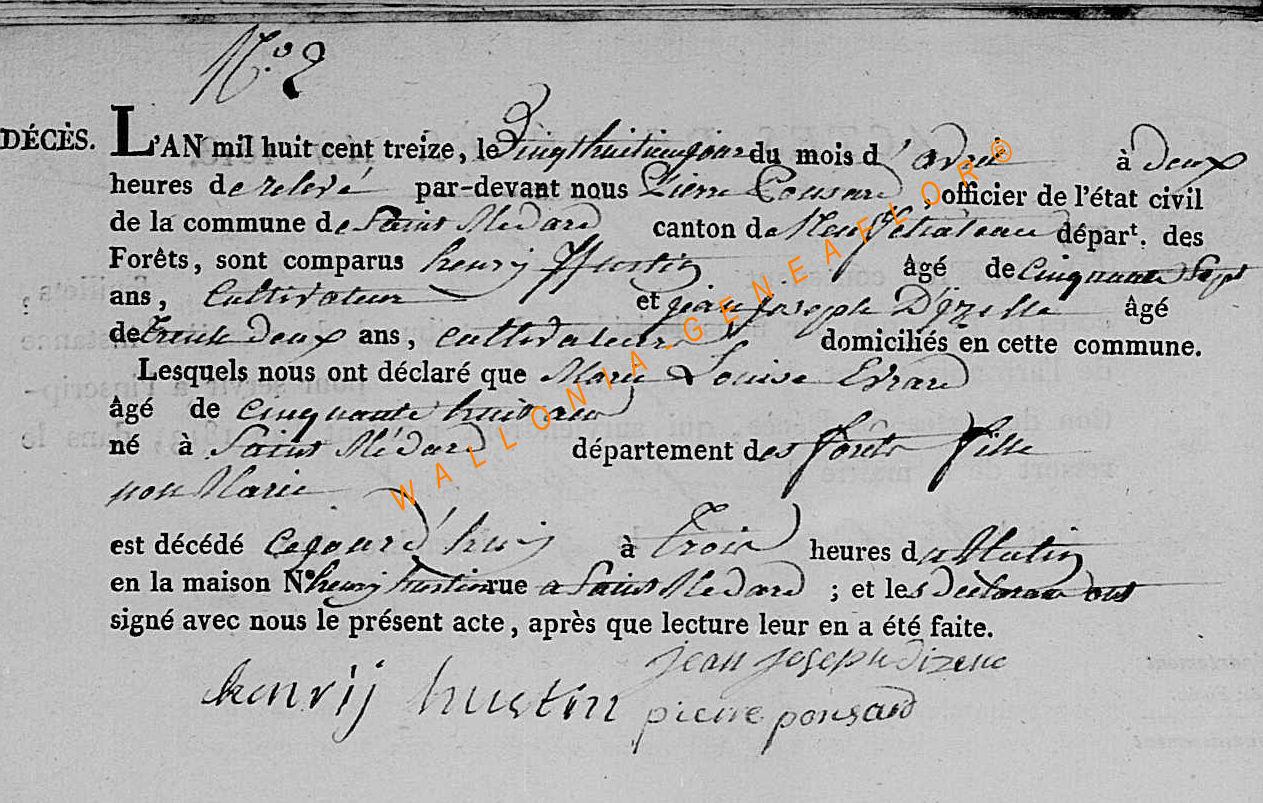 N.o 2
DÉCÈS. L'AN mil huit cent treize, le Vingthuitiemejour du mois d'avril à Deux
heures de relevé par-devant nous Pierre Ponsard, officier de l'état civil
de la commune de Saint Medard canton de Neufchateau départ. des
Forêts, sont comparus henry hustin âgé de Cinquante Sept
ans, Cultivateur et jean joseph Dizelle âgé
de trente Deux ans, cultivateur domiciliés en cette commune.
Lesquels nous ont déclaré que Marie Louise Evrard
âgé de cinquante huit ans
né à Saint Médard département des forêts fille
non Marie
est décédé Cejourd'huij à trois heures du Matin
en la maison N.o henry hustin rue a Saint Medard ; et les Declarans ont
signé avec nous le présent acte, après que lecture leur en a été faite.
jean joseph dizelle
henrij hustin pierre ponsard
WALLONIA-GENEAFLOR®